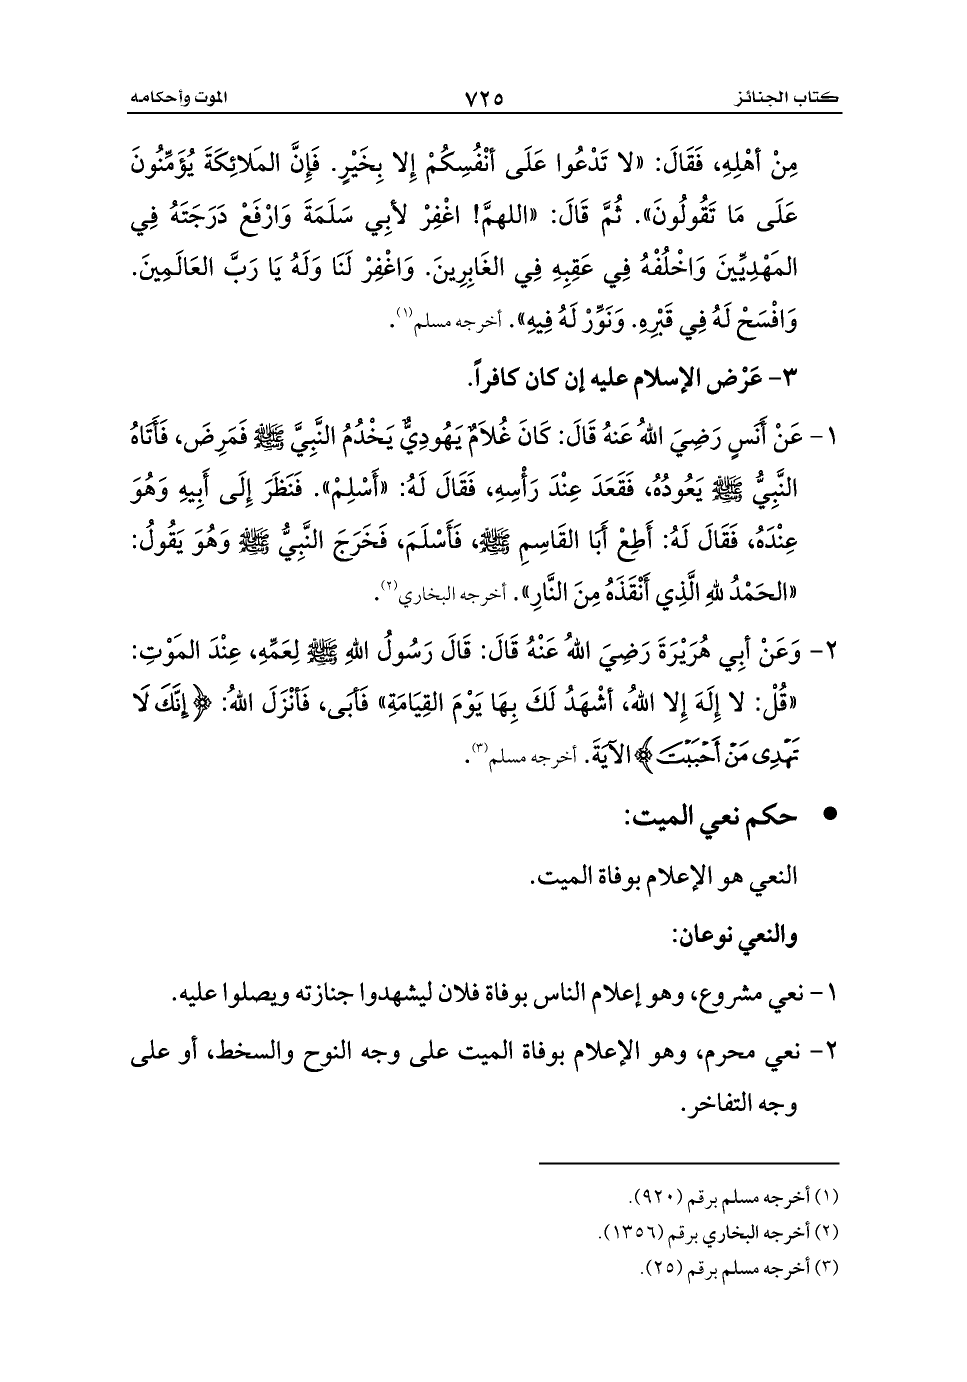 كتاب الجنائز ٧٢٥ الموت وأحكامه
مِنْ أَهْلِهِ، فَقَالَ: «لا تَدْعُوا عَلَى أَنْفُسِكُمْ إِلا بِخَيْرٍ. فَإِنَّ المَلائِكَةَ يُؤَمِّنُونَ
عَلَى مَا تَقُولُونَ». ثُمَّ قَالَ: «اللهمَّ! اغْفِرْ لأبِي سَلَمَةَ وَارْفَعْ دَرَجَتَهُ فِي
المَهْدِيِّينَ وَاخْلُفْهُ فِي عَقِبِهِ فِي الغَابِرِينَ. وَاغْفِرْ لَنَا وَلَهُ يَا رَبَّ العَالَمِينَ.
وَافْسَحْ لَهُ فِي قَبْرِهِ. وَنَوِّرْ لَهُ فِيهِ». أخرجه مسلم(١).
٣- عَرْض الإسلام عليه إن كان كافراً.
١- عَنْ أَنَسٍ رَضِيَ اللهُ عَنهُ قَالَ: كَانَ غُلاَمٌ يَهُودِيٌّ يَخْدُمُ النَّبِيَّ ﷺ فَمَرِضَ، فَأَتَاهُ
النَّبِيُّ ﷺ يَعُودُهُ، فَقَعَدَ عِنْدَ رَأْسِهِ، فَقَالَ لَهُ: «أَسْلِمْ». فَنَظَرَ إِلَى أَبِيهِ وَهُوَ
عِنْدَهُ، فَقَالَ لَهُ: أَطِعْ أَبَا القَاسِمِ ﷺ، فَأَسْلَمَ، فَخَرَجَ النَّبِيُّ ﷺ وَهُوَ يَقُولُ:
«الحَمْدُ للهِ الَّذِي أَنْقَذَهُ مِنَ النَّارِ». أخرجه البخاري(٢).
٢- وَعَنْ أبِي هُرَيْرَةَ رَضِيَ اللهُ عَنْهُ قَالَ: قَالَ رَسُولُ اللهِ ﷺ لِعَمِّهِ، عِنْدَ المَوْتِ:
«قُلْ: لا إِلَهَ إِلا اللهُ، أشْهَدُ لَكَ بِهَا يَوْمَ القِيَامَةِ» فَأبَى، فَأنْزَلَ اللهُ: ﴿إِنَّكَ لَا
تَهْدِى مَنْ أَحْبَبْتَ﴾ الآيَةَ. أخرجه مسلم(٣).
• حكم نعي الميت:
النعي هو الإعلام بوفاة الميت.
والنعي نوعان:
١- نعي مشروع، وهو إعلام الناس بوفاة فلان ليشهدوا جنازته ويصلوا عليه.
٢- نعي محرم، وهو الإعلام بوفاة الميت على وجه النوح والسخط، أو على
وجه التفاخر.
(١) أخرجه مسلم برقم (٩٢٠).
(٢) أخرجه البخاري برقم (١٣٥٦).
(٣) أخرجه مسلم برقم (٢٥).